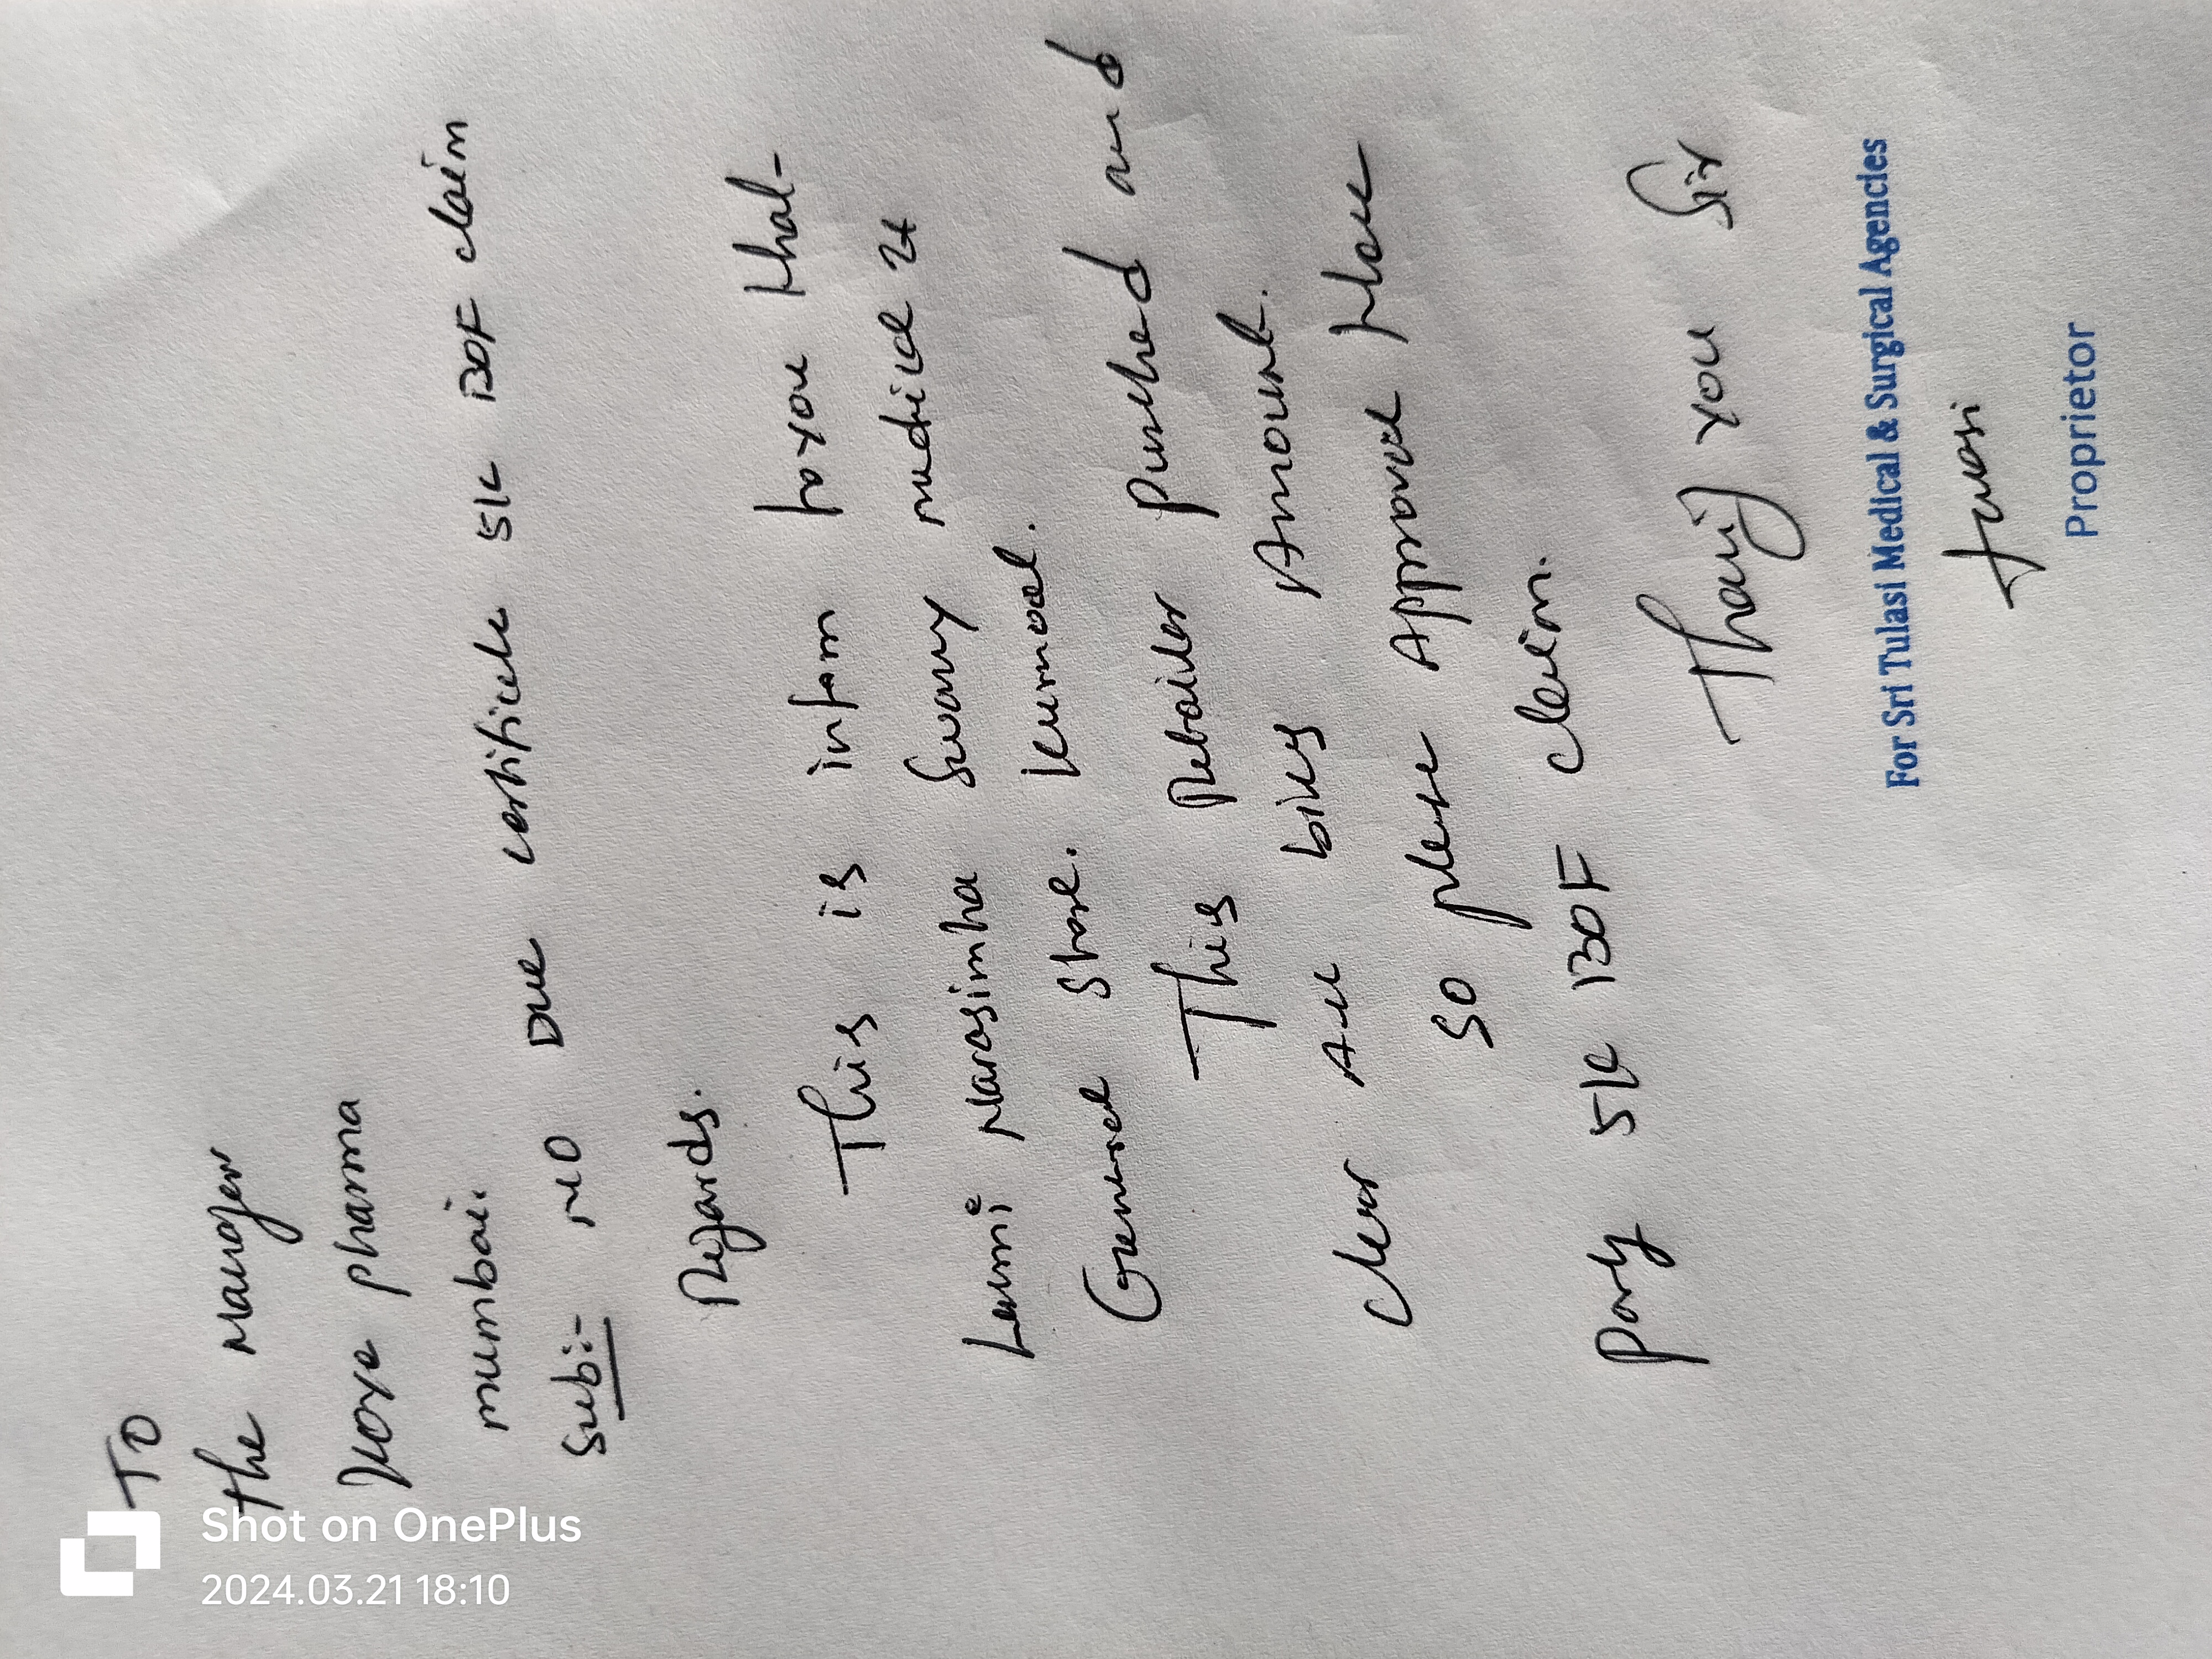 TO
The Manager
pharma
mumbai.
Sub:- NO Due certificate 5K BOF claim
Regards.
This is inform to you that
Laxmi Narasimha Swamy medical &
General Store. kurnool.
This Retailer purched and
clear All bills Amount.
so please Approval
party 5K BOF claim.
you Sir
For Sri Tulasi Medical & Surgical Agencies
Proprietor
Shot on OnePlus
2024.03.21 18:10